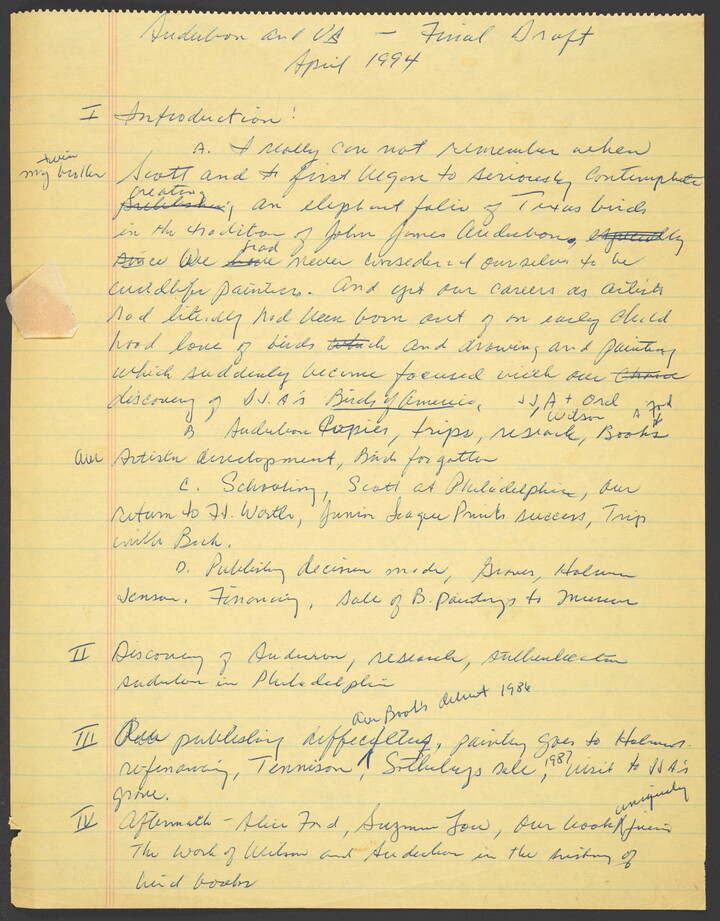 Audubon and Us — Final Draft
April 1994
I Introduction:
A. I really can not remember when
twin
my brother
Scott and I first began to seriously contemplate
creating
publishing an elephant folio of Texas birds
in the tradition of John James Audubon, especially
had
since We have never considered ourselves to be
wildlife painters. And yet our careers as artists
had literally had been born out of an early child
hood love of birds which and drawing and painting
which suddenly became focused with our chance
discovery of JJ.A's Birds of America, JJA + Ord
Wilson
B Audubon Copies, trips, research, Books
our Artistic development, Birds forgotten
C. Schooling, Scott at Philadelphia, our
return to Ft. Worth, Junior League Prints success, Trip
with Beck.
D. Publishing decision made, Graves, Holman
Jenson. Financing, sale of B. paintings to Museum
II Discovery of Audubon, research, authentication
Audubon in Philadelphia
our Books debut 1986
III publishing difficulties, painting goes to Holman.
refinancing, Tennison, Sotheby's sale, 1987 visit to JJA's
grave.
uniquely
IV Aftermath — Alice Ford, Suzanne Low, our book joins
The work of Wilson and Audubon in the history of
bird books